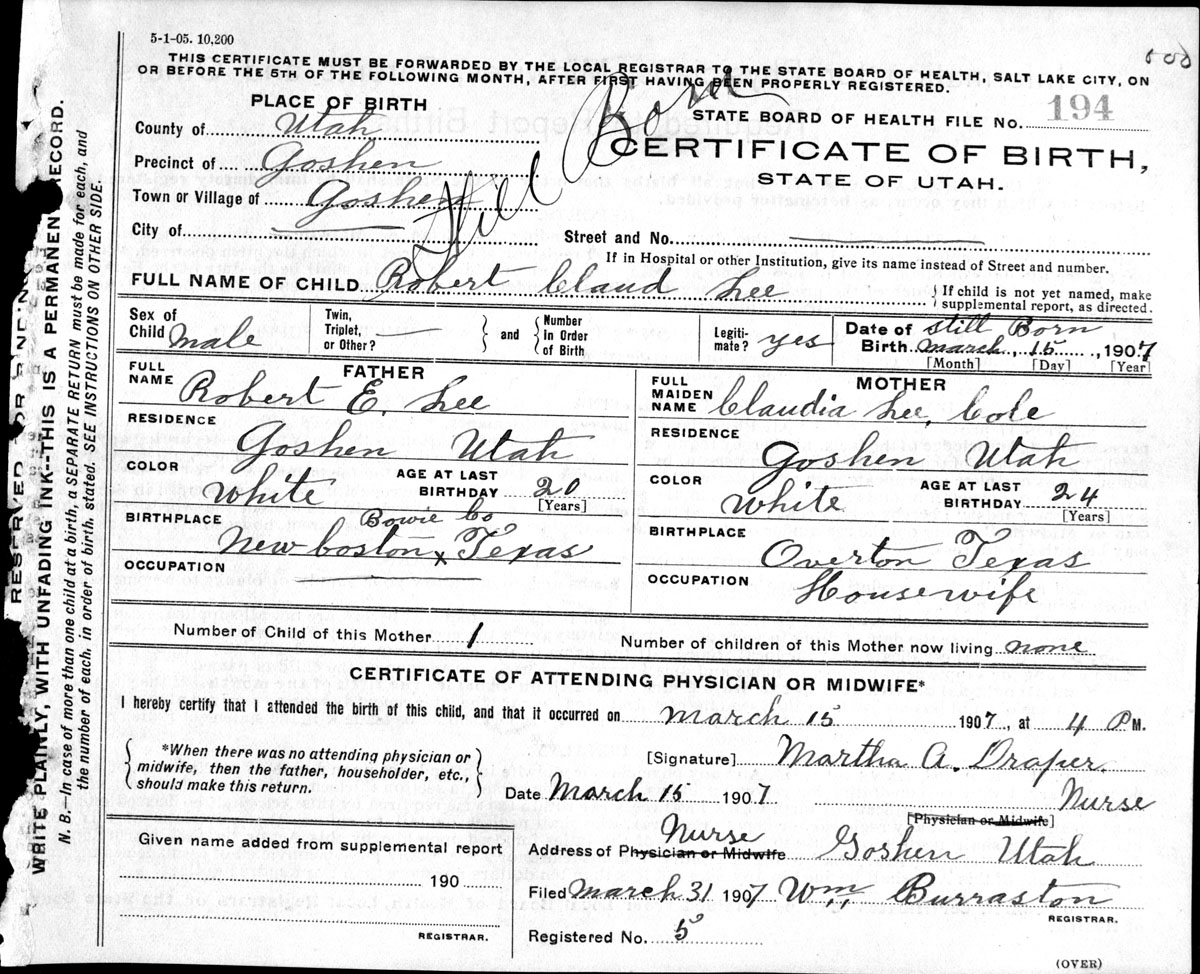 5-1-05. 10,200
THIS CERTIFICATE MUST BE FORWARDED BY THE LOCAL REGISTRAR TO THE STATE BOARD OF HEALTH, SALT LAKE CITY, ON
OR BEFORE THE 5TH OF THE FOLLOWING MONTH, AFTER FIRST HAVING BEEN PROPERLY REGISTERED.
Still Born
PLACE OF BIRTH
County of Utah
Precinct of Goshen
Town or Village of Goshen
City of
STATE BOARD OF HEALTH FILE No. 194
CERTIFICATE OF BIRTH,
STATE OF UTAH.
Street and No.
If in Hospital or other Institution, give its name instead of Street and number.
FULL NAME OF CHILD Robert Claud Lee
If child is not yet named, make
supplemental report, as directed.
Sex of
Child Male
Twin,
Triplet,
or Other?
and
Number
in Order
of Birth
Legiti-
mate? yes
Date of still Born
Birth March, 15, 1907
[Month] [Day] [Year]
FATHER
FULL
NAME Robert E. Lee
RESIDENCE
Goshen Utah
COLOR
White
AGE AT LAST
BIRTHDAY 20
[Years]
BIRTHPLACE Bowie Co
New boston x Texas
OCCUPATION
MOTHER
FULL
MAIDEN
NAME Claudia Lee Cole
RESIDENCE
Goshen Utah
COLOR
White
AGE AT LAST
BIRTHDAY 24
[Years]
BIRTHPLACE
Overton Texas
OCCUPATION
Housewife
Number of Child of this Mother 1
Number of children of this Mother now living none
CERTIFICATE OF ATTENDING PHYSICIAN OR MIDWIFE*
I hereby certify that I attended the birth of this child, and that it occurred on March 15 1907, at 4 PM.
*When there was no attending physician or
midwife, then the father, householder, etc.,
should make this return.
[Signature] Martha A. Draper.
Date March 15 1907 Nurse
[Physician or Midwife]
Nurse
Address of Physician or Midwife Goshen Utah
Given name added from supplemental report
190
REGISTRAR.
Filed March 31 1907 Wm Burraston
REGISTRAR.
Registered No. 5
(OVER)
RESERVED FOR BINDING
WRITE PLAINLY, WITH UNFADING INK--THIS IS A PERMANENT RECORD.
N. B.--In case of more than one child at a birth, a SEPARATE RETURN must be made for each, and
the number of each, in order of birth, stated. SEE INSTRUCTIONS ON OTHER SIDE.